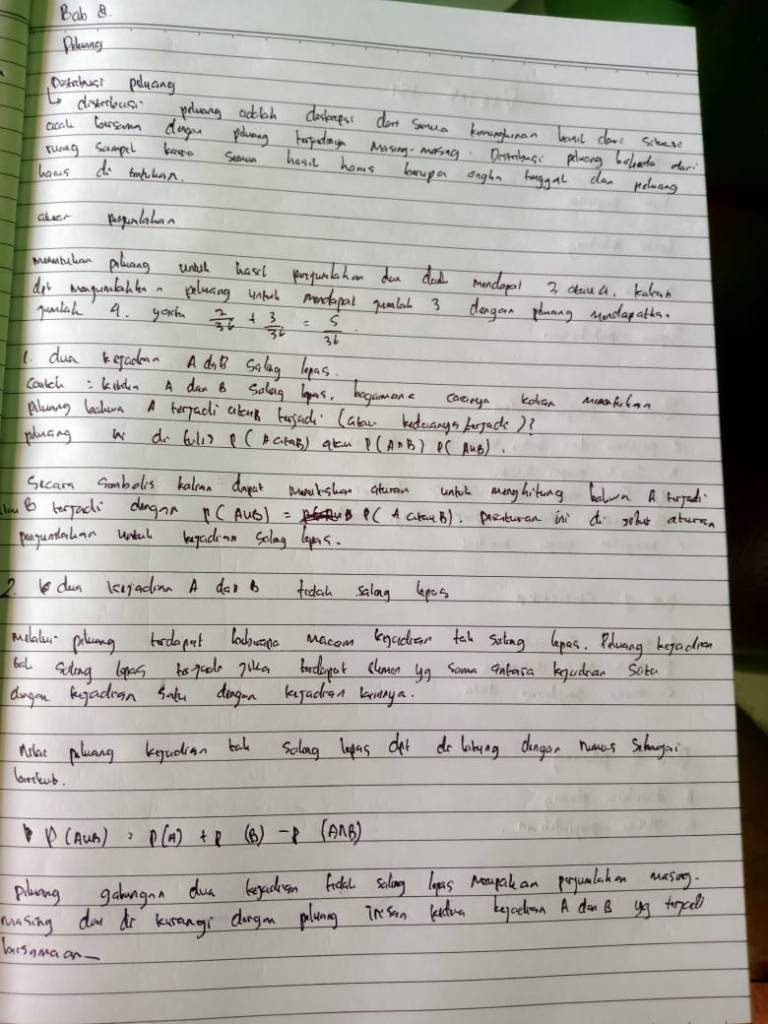 Bab 8.
Peluang
Distribusi peluang
↳ distribusi peluang adalah deskripsi dari semua kemungkinan hasil dari situasi
acak bersama dengan peluang terjadinya masing-masing. Distribusi peluang berbeda dari
ruang sampel karena semua hasil harus berupa angka tunggal dan peluang
harus di tentukan.
aturan penjumlahan
menentukan peluang untuk hasil penjumlahan dua dadu mendapat 3 atau 4. kalian
dpt mengumlahkan peluang untuk mendapat jumlah 3 dengan peluang mendapatkan
jumlah 4. yaitu 2/36 + 3/36 = 5/36.
1. dua kejadian A dan B saling lepas.
Contoh : ketika A dan B saling lepas, bagaimana caranya kalian menentukan
peluang bahwa A terjadi atau B terjadi (atau keduanya terjadi)?
peluang ini di tulis P (A atau B) atau P(A∩B) P(A∪B).
Secara simbolis kalian dapat menuliskan aturan untuk menghitung bahwa A terjadi
atau B terjadi dengan P(A∪B) = P(A atau B). peraturan ini di sebut aturan
penjumlahan untuk kejadian saling lepas.
2. dua kejadian A dan B tidak saling lepas
Melalui peluang terdapat beberapa macam kejadian tak saling lepas. Peluang kejadian
tak saling lepas terjadi jika terdapat elemen yg sama antara kejadian satu
dengan kejadian satu dengan kejadian lainnya.
Nilai peluang kejadian tak saling lepas dpt di hitung dengan rumus sebagai
berikut.
P(A∪B) = P(A) + P (B) - P (A∩B)
peluang gabungan dua kejadian tidak saling lepas merupakan penjumlahan masing-
masing dan di kurangi dengan peluang irisan kedua kejadian A dan B yg terjadi
bersamaan